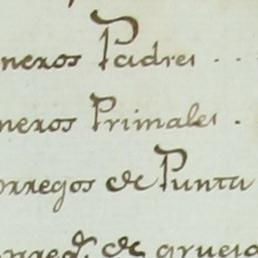 neros Padres . .
neros Primales .
orregos de Punta
orreg.s de grueso